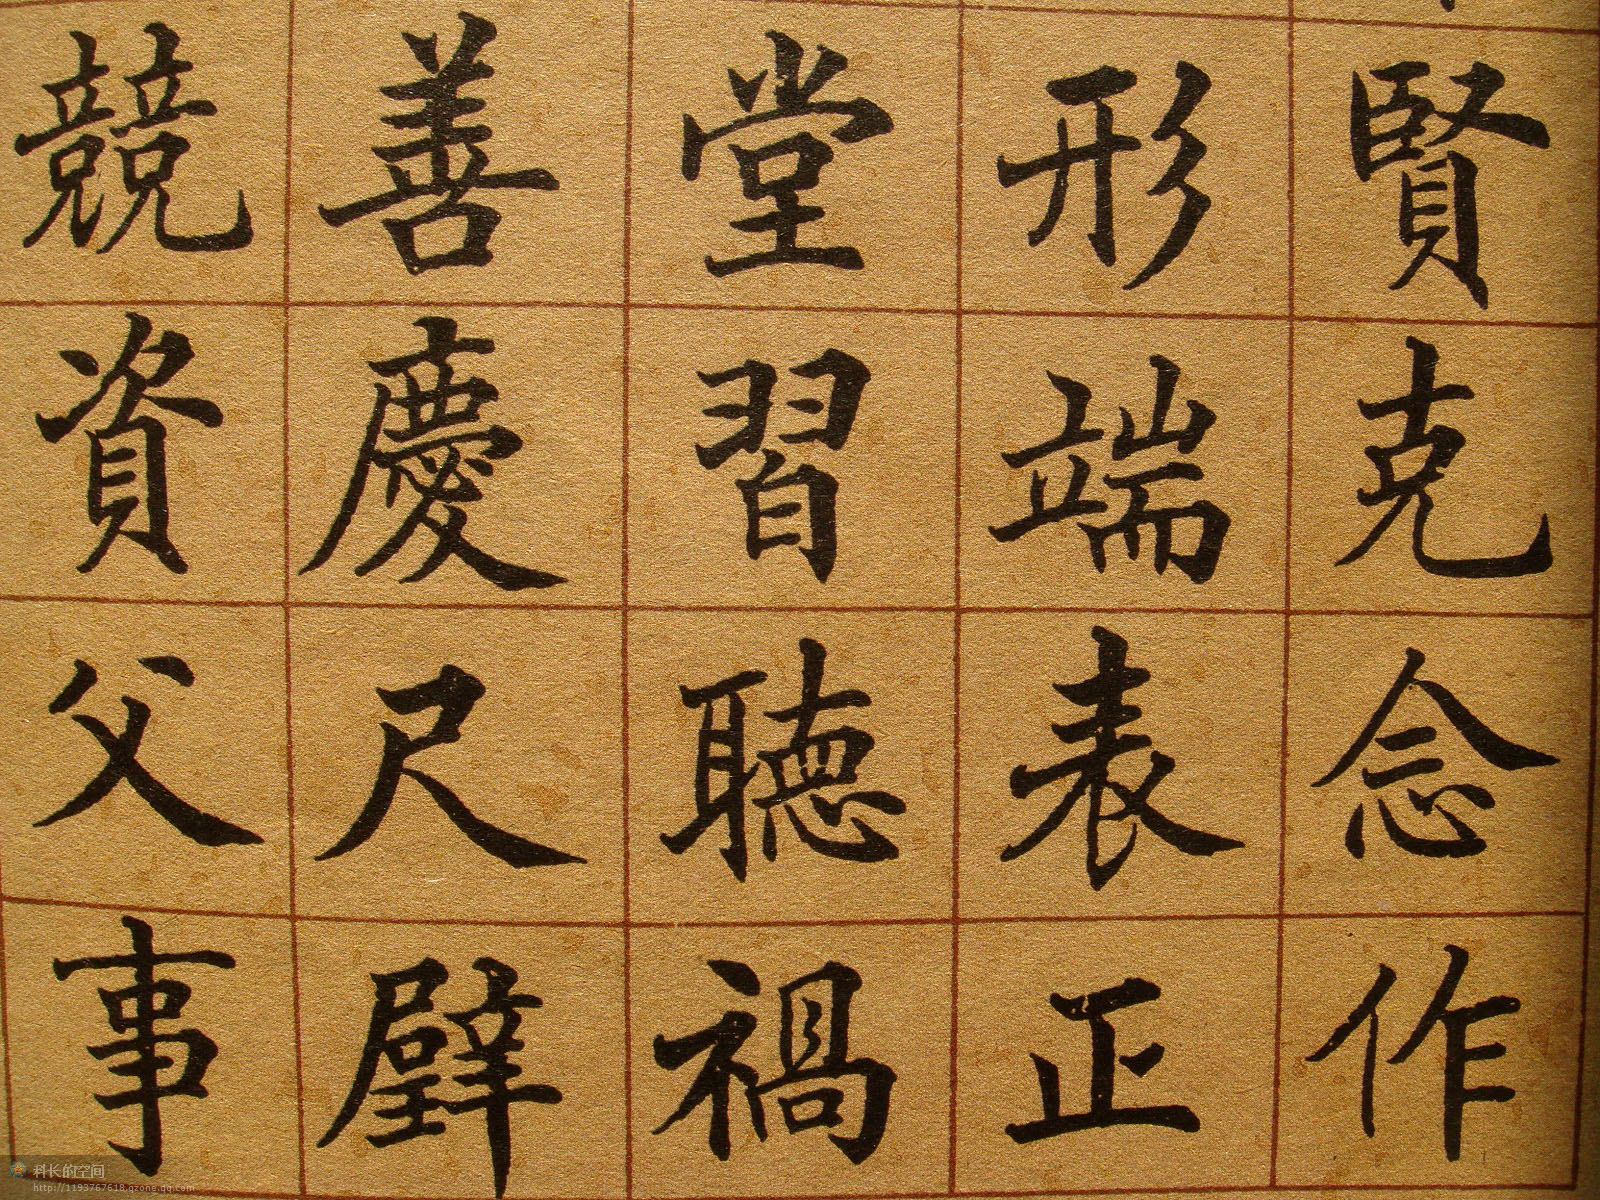 賢克念作
形端表正
堂習聽禍
善慶尺璧
競資父事
科长的空间
http://1193767618.qzone.qq.com